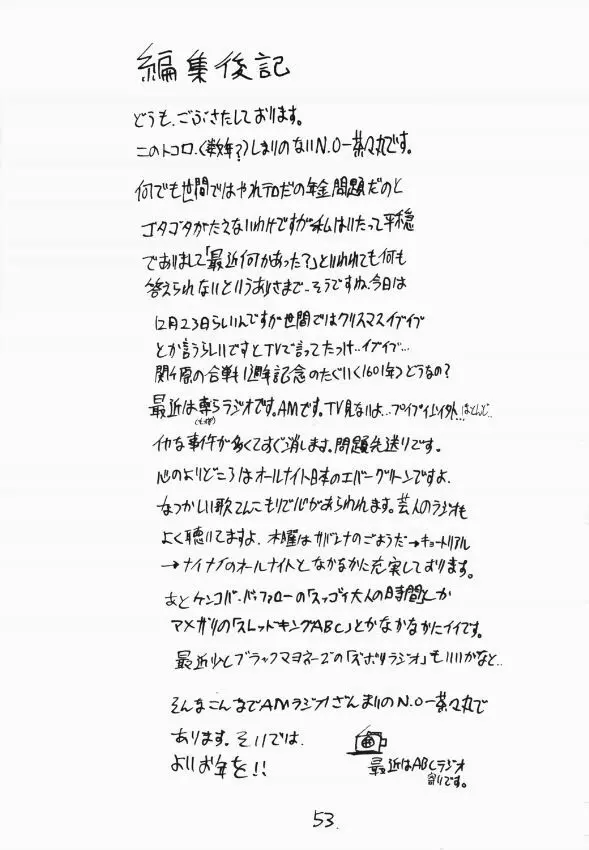 編集後記
どうも、ごぶさたしております。
このトコロ、(数年?)しまりのないN.O-茶々丸です。
何でも世間ではやれテロだの年金問題だのと
ゴタゴタがたえないわけですが私はいたって平穏
でありまして「最近何かあった?」といわれても何も
答えられないというありさまで‥そうですね、今日は
12月23日らしいんですが世間ではクリスマスイブイブ
とか言うらしいですとTVで言ってたっけ‥イブイブ…
関ヶ原の合戦1周年記念のたぐい(1601年)どうなの?
最近は専らラジオです。AMです。TV見ないよ…
(もっぱら)
イヤな事件が多くてすぐ消します。問題先送りです。
心のよりどころはオールナイト日本のエバーグリーンですよ、
なつかしい歌てんこもりで心があらわれます。芸人のラジオも
よく聴いてますよ、木曜はサバンナのごようだ→キョートリアル
→ナイナイのオールナイトとなかなかに充実しております。
あとケンコバ・バッファローの「スッゴイ大人の時間」とか
アメザリの「スレッドキングABC」とかなかなかにイイです。
最近少しブラックマヨネーズの「ズボリラジオ」もいいかなと‥
そんなこんなでAMラジオざんまいのN.O-茶々丸で
あります。それでは、
よいお年を!!
最近はABCラジオ
寄りです。
53.